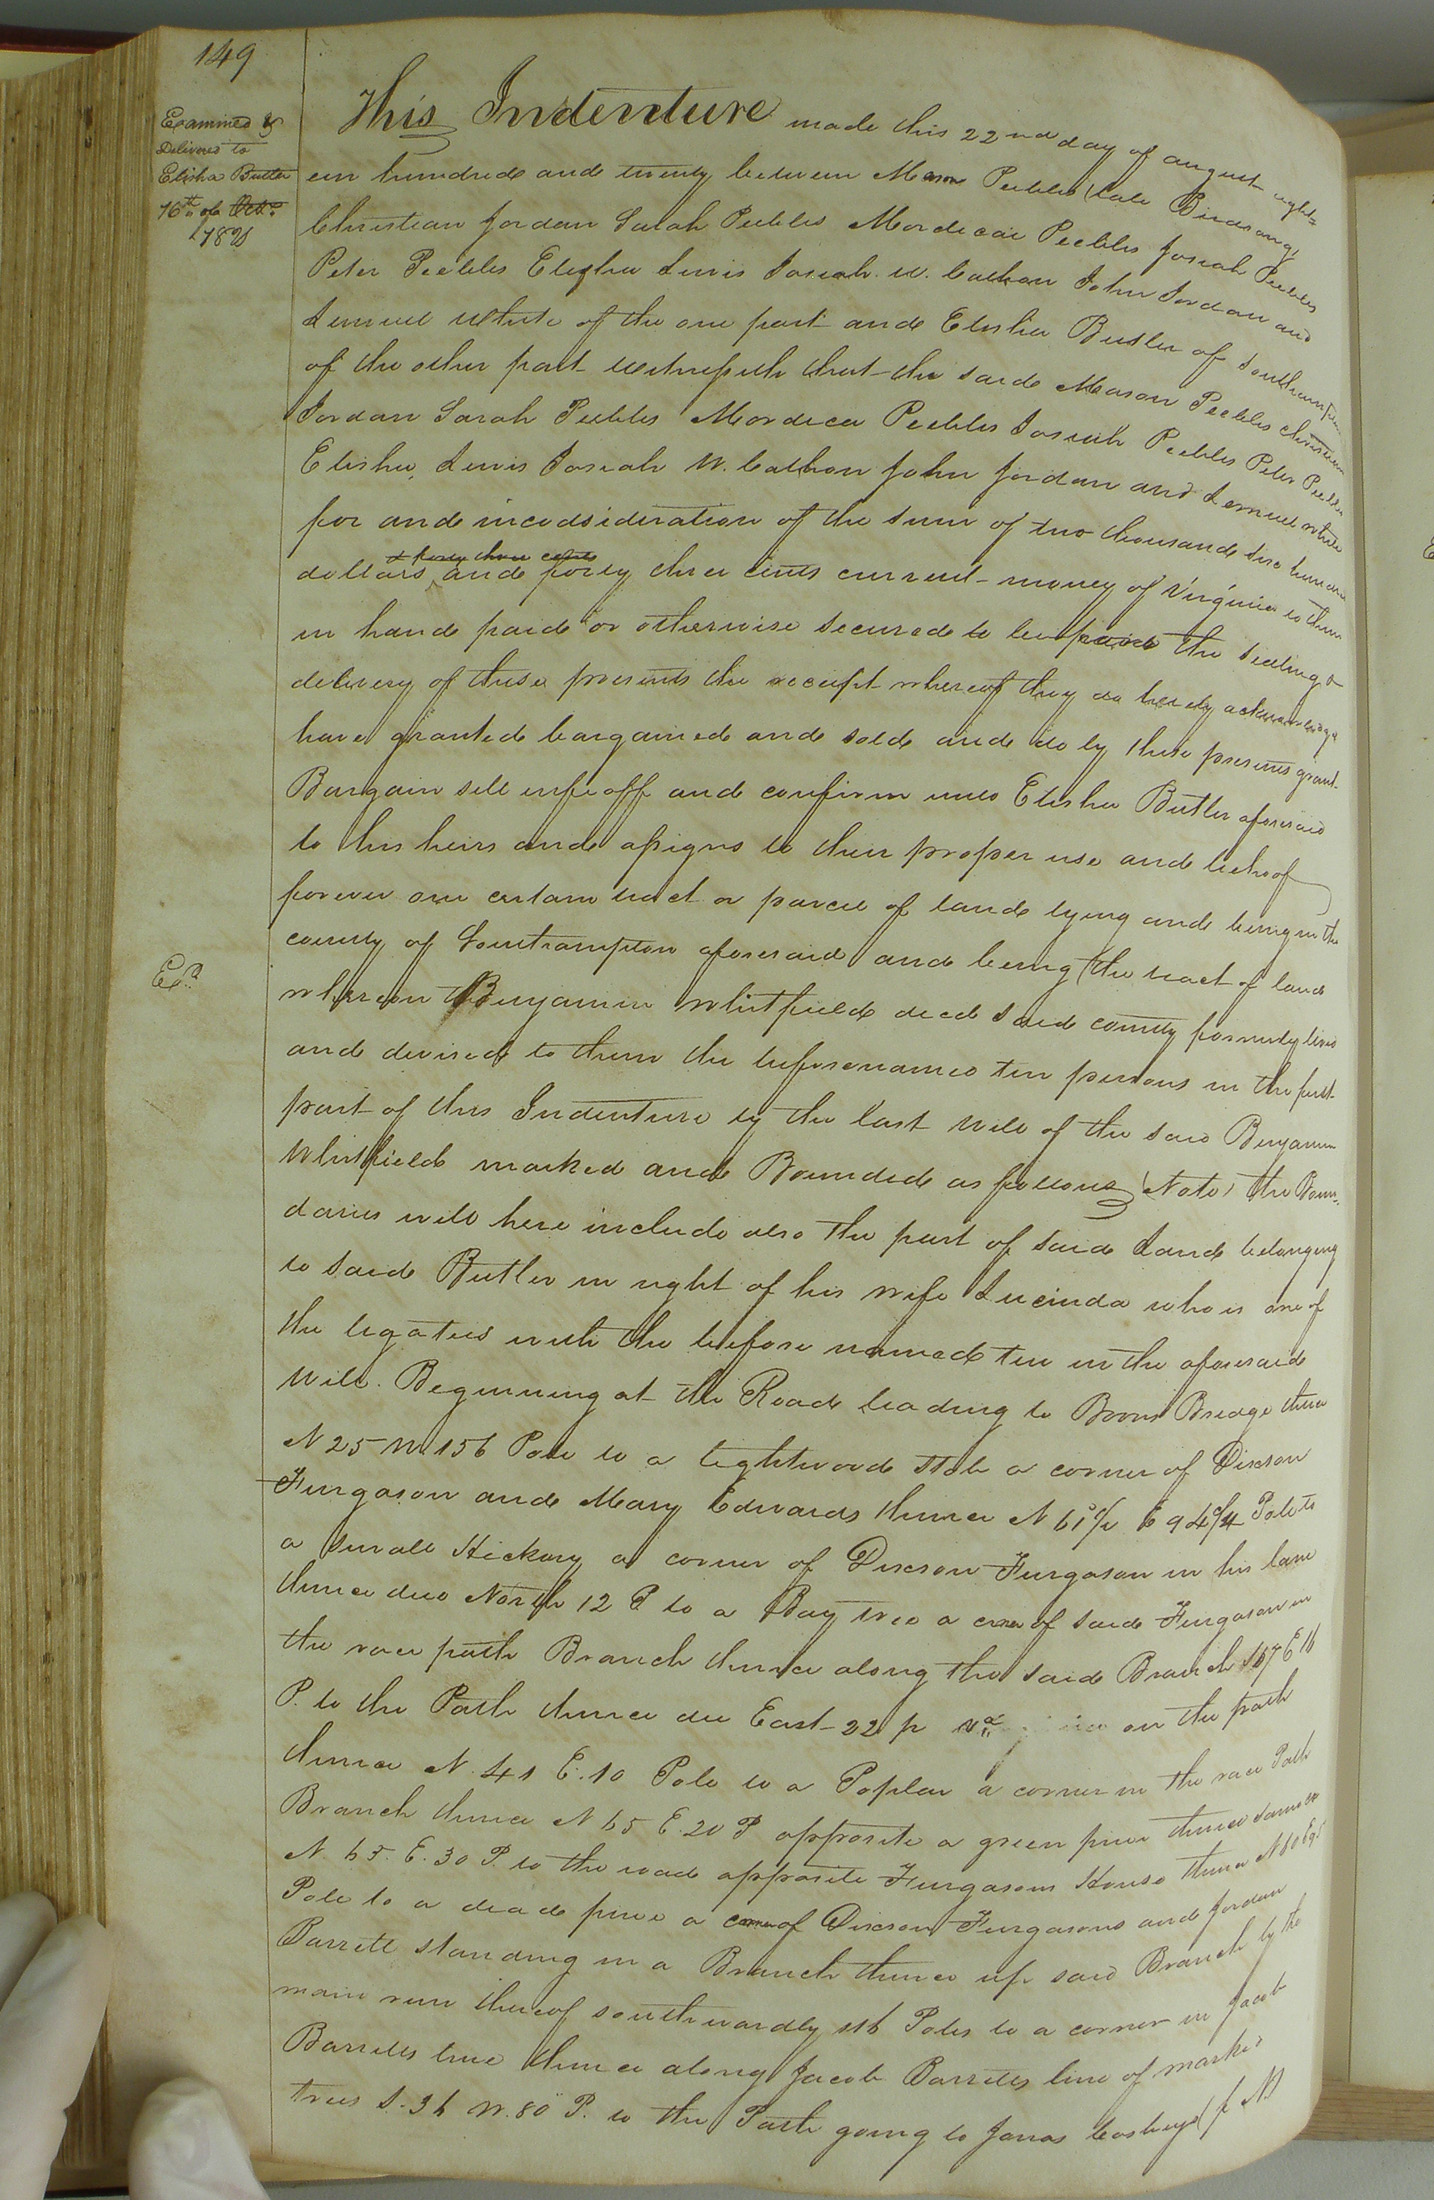 149
Examined &
Delivered to
Elisha Butler
16th of Octr
1821
This Indenture made this 22nd day of august eight-
een hundred and twenty between Mason Peebles (late Birdsong)
Christian Jordan Sarah Peebles Mordecai Peebles Josiah Peebles
Peter Peebles Elisha Lewis Josiah W. Cathon John Jordan and
Lemuel White of the one part and Elisha Butler of Southampton
of the other part witnesseth that the said Mason Peebles Christian
Jordan Sarah Peebles Mordica Peebles Josiah Peebles Peter Peebles
Elisha Lewis Josiah W. Cathon John Jordan and Lemuel White
for and inconsideration of the sum of two thousand two hundred
& forty three cents
dollars and forty three cents current money of Virginia to them
in hand paid or otherwise secured to be paid the sealing &
delivery of these presents the receipt whereof they do hereby acknowledge
have granted bargained and sold and do by these presents grant
Bargain sell infeoff and confirm unto Elisha Butler aforesaid
to his heirs and assigns to their proper use and behoof
forever one certain tract or parcel of land lying and being in the
county of Southampton aforesaid and being the tract of land
whereon Benjamin Whitfield decd said county formerly lived
and devised to them the beforenamed ten persons in the first
part of this Indenture by the last will of the said Benjamin
Whitfield marked and Bounded as follows (Note) the Boun-
daries will here include also the part of said Land belonging
to said Butler in right of his wife Lucinda who is one of
the legatees with the before named ten in the aforesaid
Will. Beginning at the Road leading to Boons Bridge thence
N 25 W. 156 Pole to a lightwood stob a corner of Dixson
Furgason and Mary Edwards thence N 61 1/2 E 94 3/4 Pole to
a small Hickory a corner of Dixson Furgason in his lane
thence due North 12 P to a Bay tree a corner of said Furgason in
the race path Branch thence along the said Branch S 67 E 16
P. to the Path thence due East 22 p on the path
thence N. 41 E. 10 Pole to a Poplar a corner in the race Path
Branch thence N 65 E. 20 P opposite a green pine thence same co
N. 65. E. 30 P. to the road opposite Furgasons House thence N
Pole to a dead pine a corner of Dixson Furgasons and Jordan
Barrett standing in a Branch thence up said Branch by the
main run thereof southwardly 116 Poles to a corner in Jacob
Barretts line thence along Jacob Barretts line of marked
trees S. 36 W. 80 P. to the Path going to Jonas